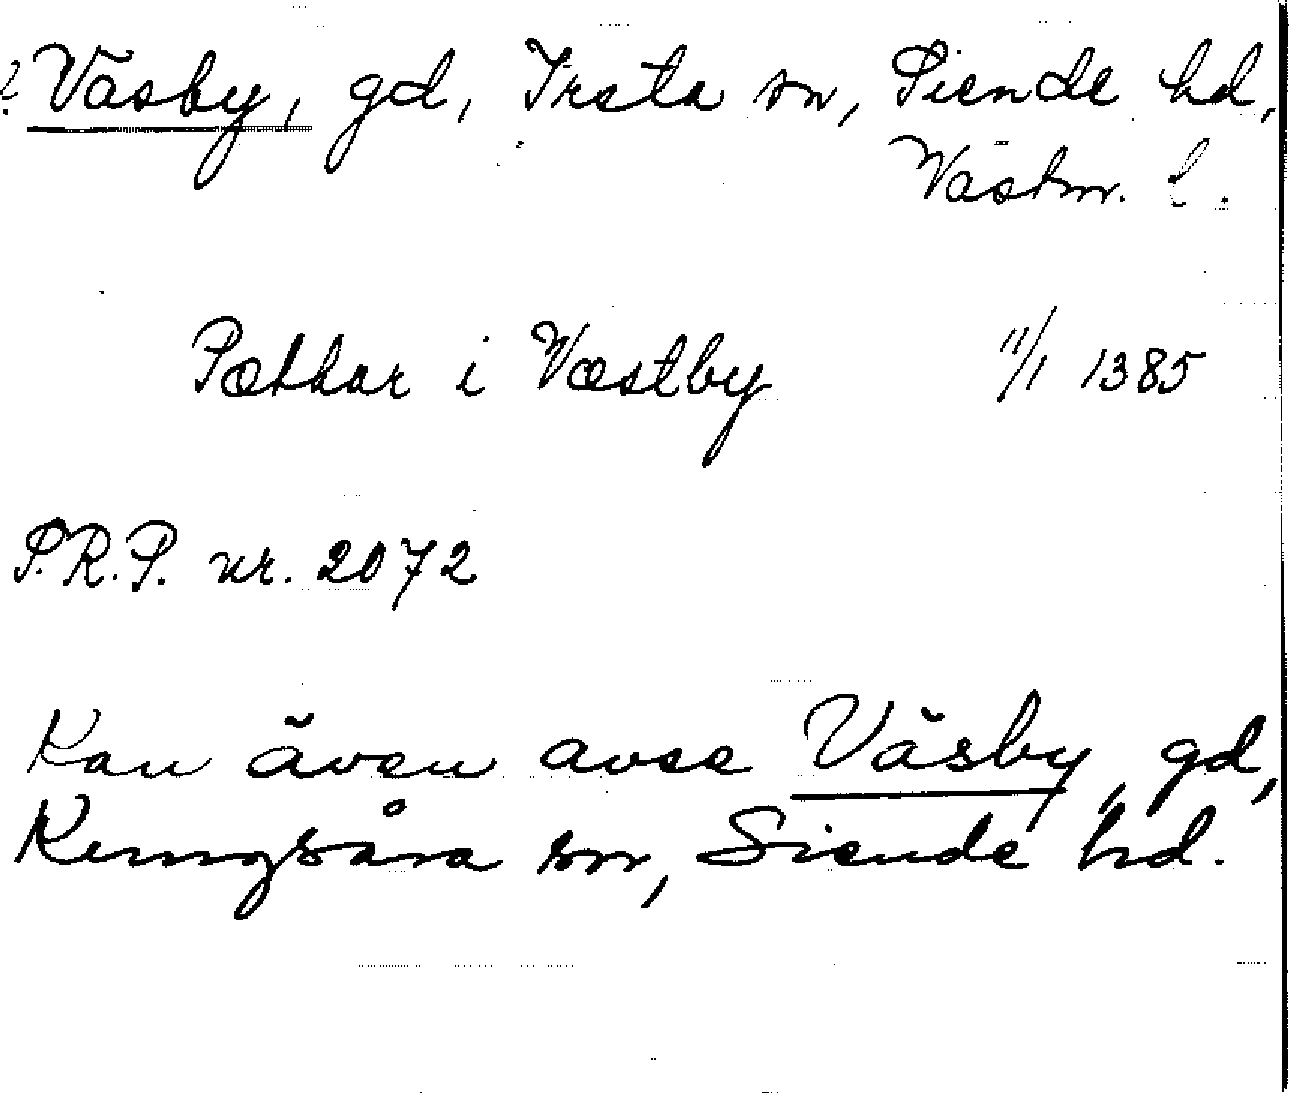 ? Väsby, gd, Irsta sn, Siende hd,
Västm. l.
Pæthar i Væstby 11/1 1385
S.R.P. nr. 2072
Kan även avse Väsby, gd,
Kungsåra sn, Siende hd.